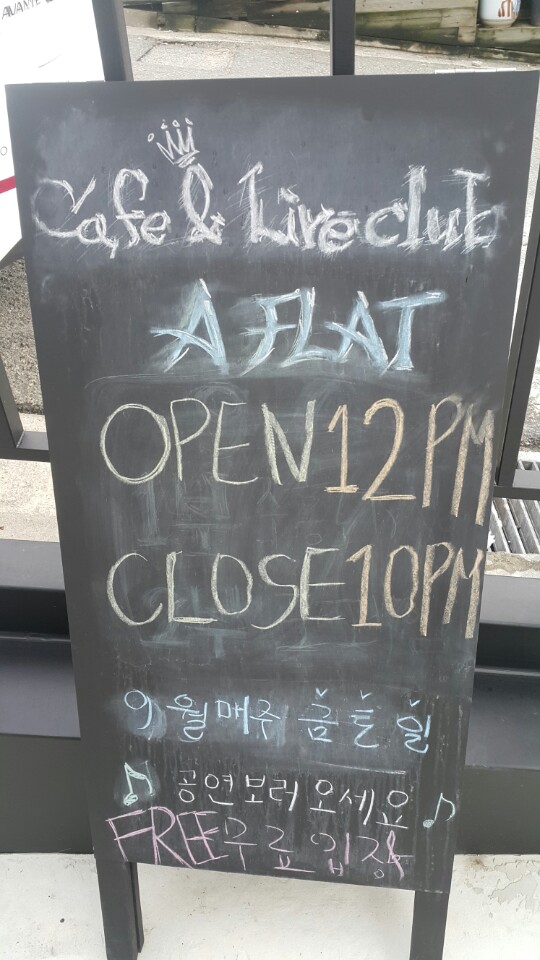 AVANTE
Cafe & Live club
A FLAT
OPEN 12PM
CLOSE 10PM
9월 매주 금 토 일
공연보러 오세요
FREE 무료 입장